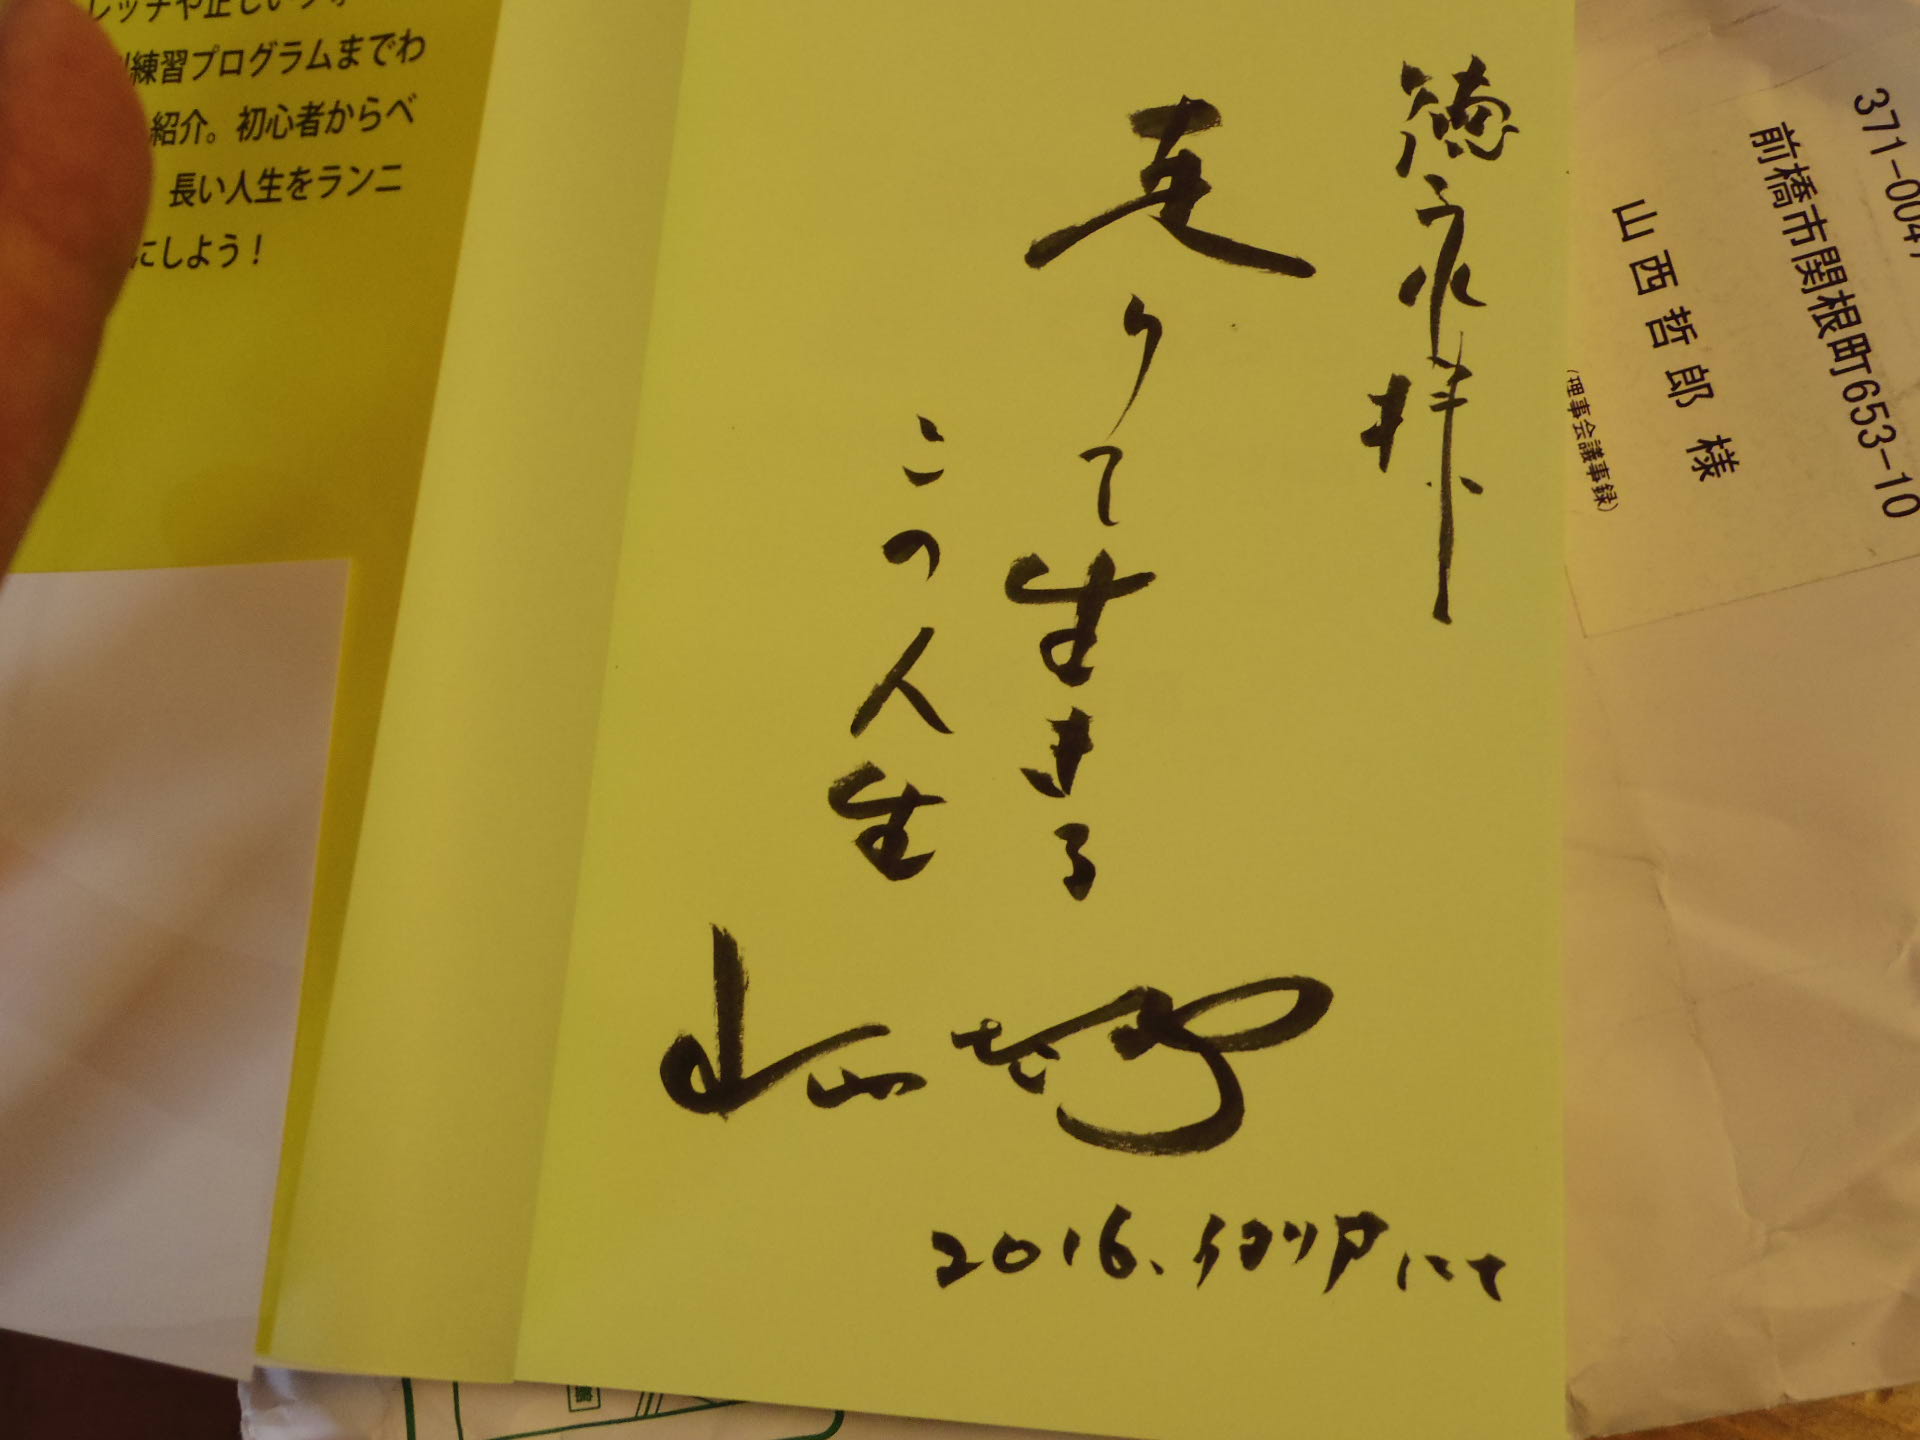 レッチや正しいフォー
練習プログラムまでわ
紹介。初心者からベ
長い人生をランニ
にしよう！
徳永様
走りて生きる
この人生
山西哲郎
2016.イタリアにて
371-0047
前橋市関根町653-10
山西哲郎 様
(理事会議事録)